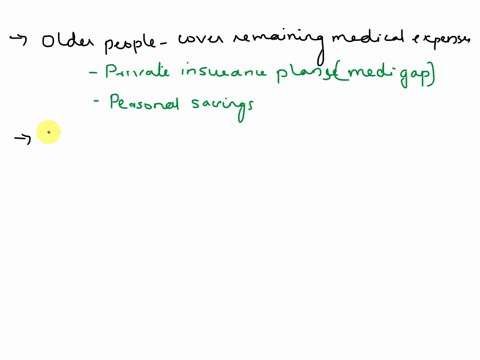 → Older people - cover remaining medical expenses
- Private insurance plans (medigap)
- Personal savings
→